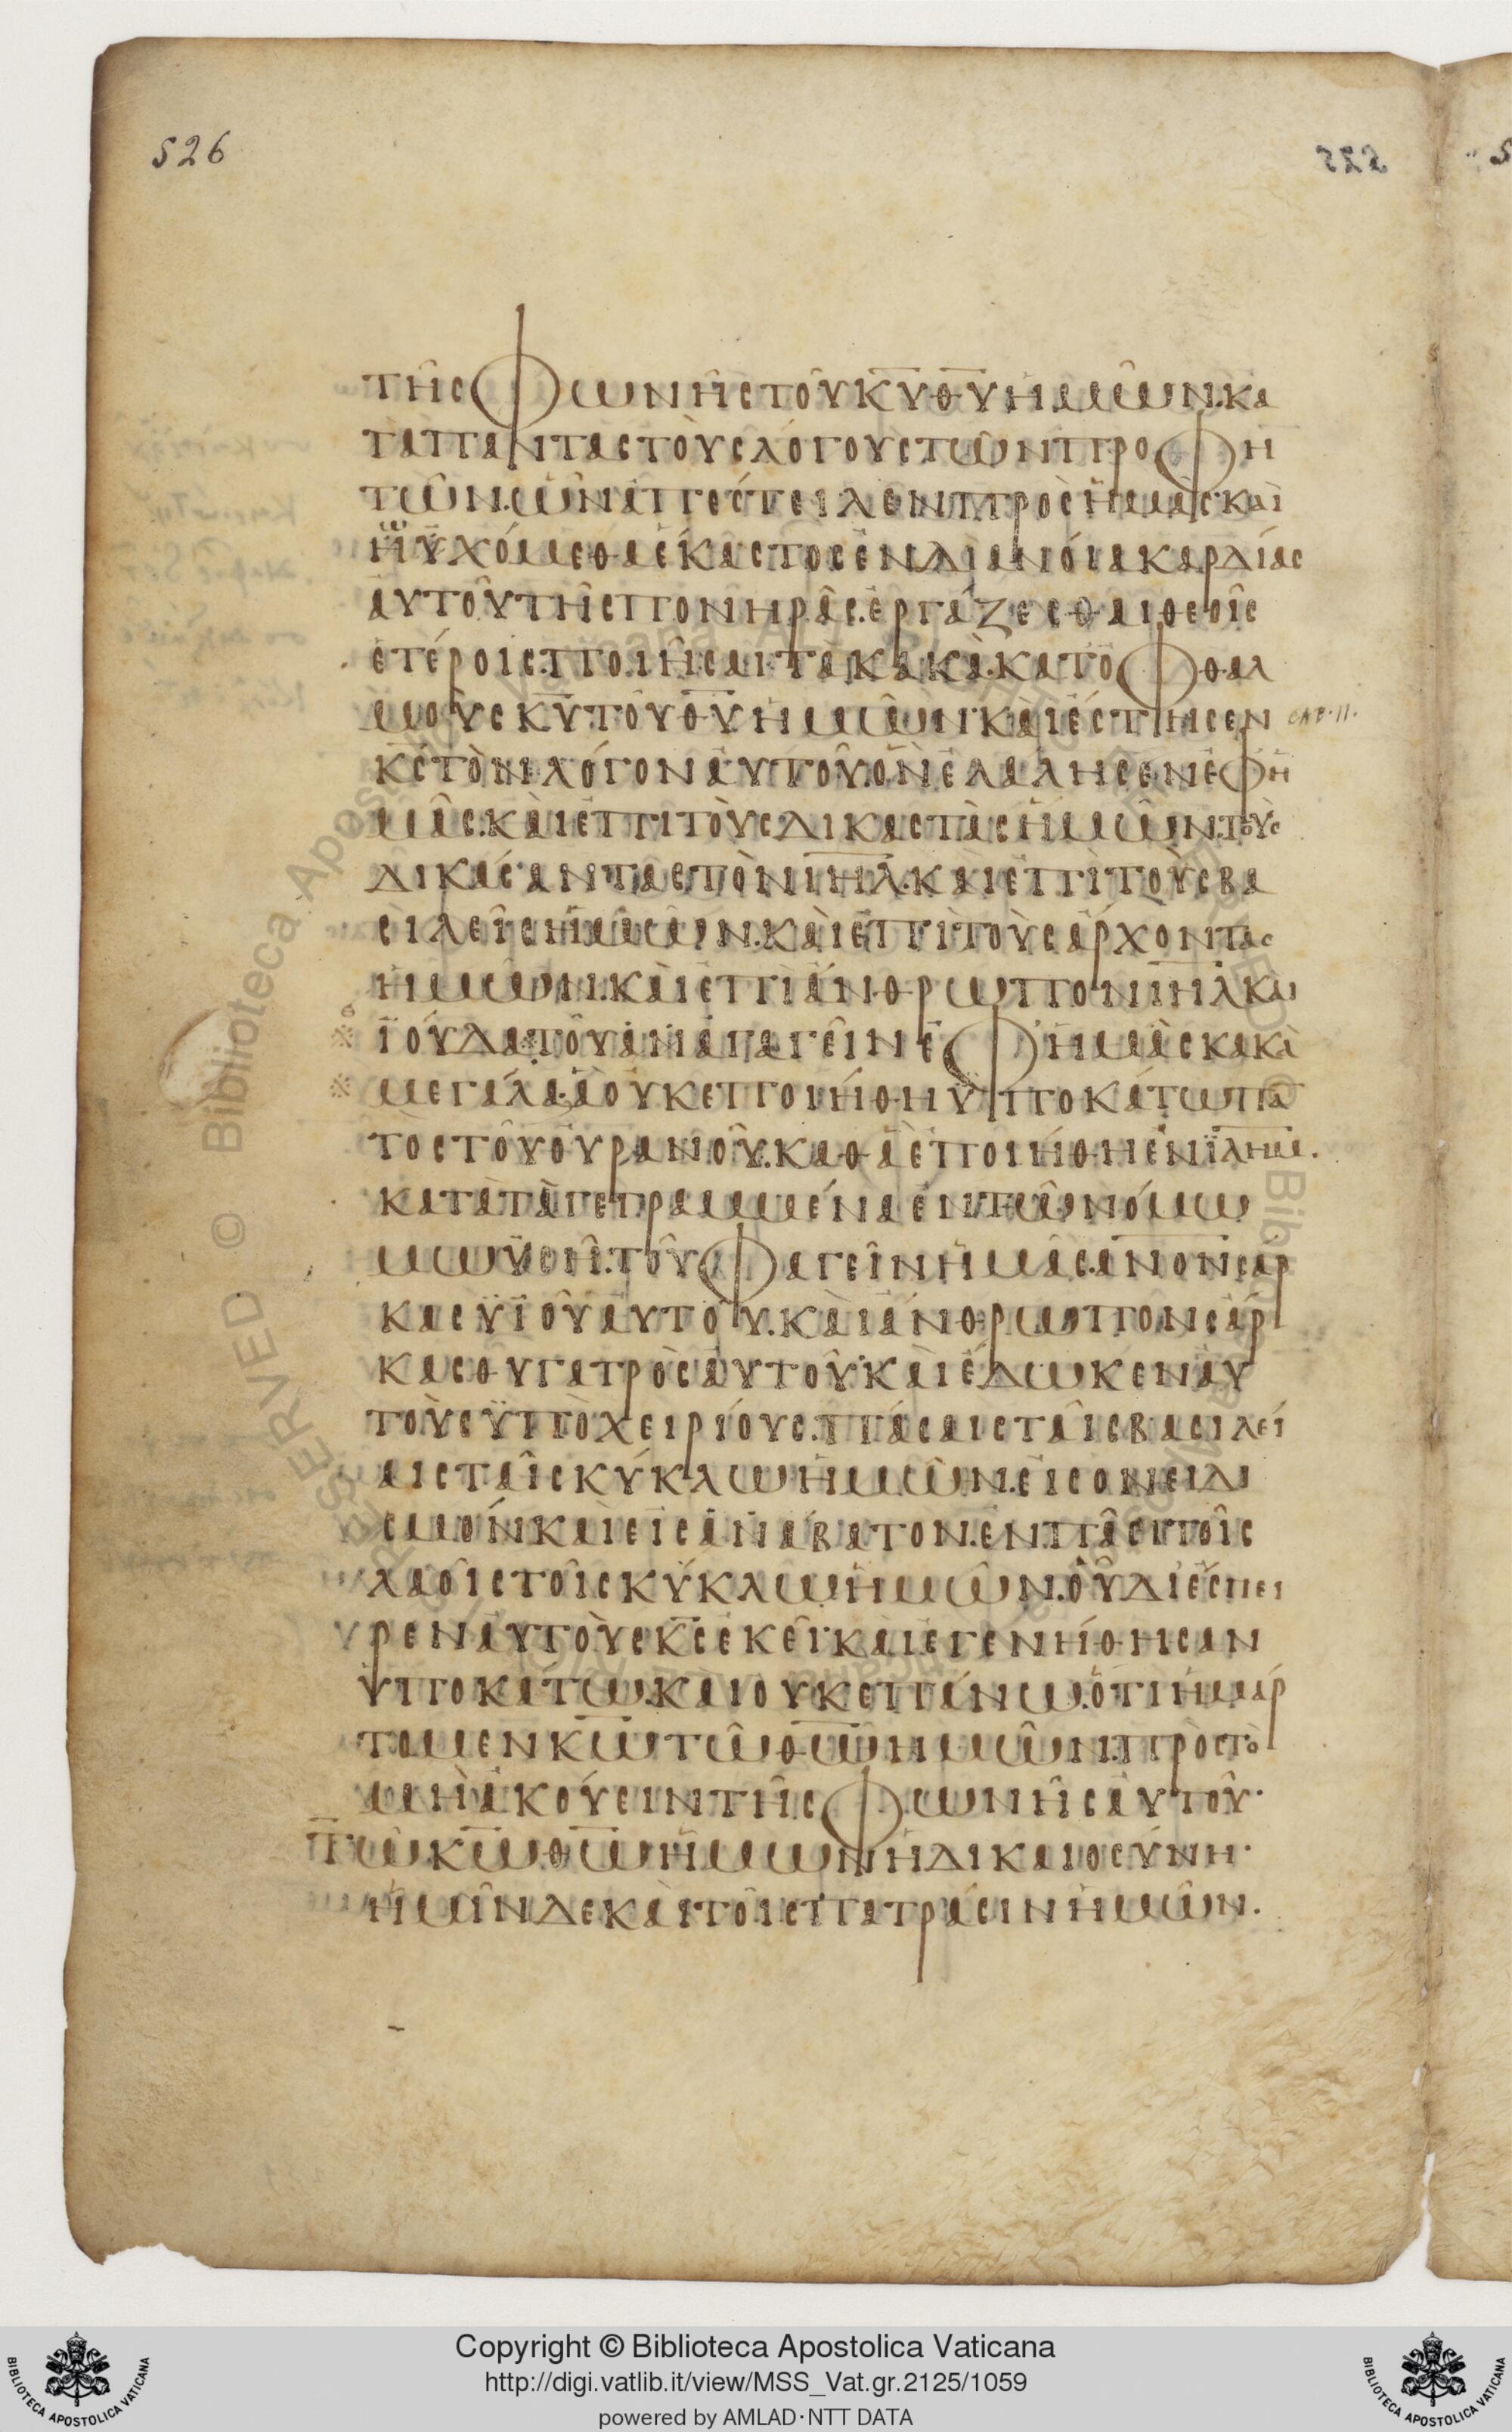 526
τῆς φωνῆς τοῦ κ̅υ̅ θ̅υ̅ ἡμῶν. κα
τὰ πάντας τοὺς λόγους τῶν προφη
τῶν. ὧν ἀπέστειλεν πρὸς ἡμᾶς· καὶ
ᾠχόμεθα ἕκαστος ἐν διανοία καρδίας
αὐτοῦ τῆς πονηρᾶς. ἐργάζεσθαι θεοῖς
ἑτέροις. ποιῆσαι τὰ κακὰ. κατ ὀφθαλ
μοὺς κ̅υ̅ τοῦ θ̅υ̅ ἡμῶν· καὶ ἔστησεν
CAP. II.
κ̅ς̅ τὸν λόγον αὐτοῦ. ὃν ἐλάλησεν ἐφ ἡ
μᾶς. καὶ ἐπὶ τοὺς δικαστὰς ἡμῶν. τοὺς
δικάσαντας τὸν ι̅η̅λ̅. καὶ ἐπὶ τοὺς βα
σιλεῖς ἡμῶν. καὶ ἐπὶ τοὺς ἄρχοντας
ἡμῶν. καὶ ἐπὶ ἄνθρωπον ι̅η̅λ̅ καὶ
※ ϊούδα· τοῦ ἀναγαγεῖν ἐφ ἡμᾶς κακὰ
※ μεγάλα· ἃ οὐκ ἐποιήθη ϋποκάτω πα̅
τὸς τοῦ οὐρανοῦ. καθὰ ἐποιήθη ἐν ϊ̅λ̅η̅μ̅.
κατὰ τὰ γεγραμμένα ἐν τῶ νόμω
μωϋσῆ. τοῦ φαγεῖν ἡμᾶς. α̅ν̅ο̅ν̅ σάρ
κας ϋϊοῦ αὐτοῦ. καὶ ἄνθρωπον σάρ
κας θυγατρὸς αὐτοῦ· καὶ ἔδωκεν αὐ
τοὺς ϋποχειρίους. πάσαις ταῖς βασιλεί
αις ταῖς κύκλω ἡμῶν. εἰς ονειδι
σμὸν καὶ εἰς ἄβατον. ἐν πᾶσι τοῖς
λαοῖς τοῖς κύκλω ἡμῶν. οὗ διέσπει
ρεν αὐτοὺς κ̅ς̅ ἐκεῖ· καὶ ἐγενήθησαν
ϋποκάτω. καὶ οὐκ ἐπάνω. ὅτι ἡμάρ
τομεν κ̅ω̅ τῶ θ̅ω̅ ἡμῶν. πρὸς τὸ
μὴ ἀκούειν τῆς φωνῆς αὐτοῦ·
Τῶ κ̅ω̅ θ̅ω̅ ἡμῶν ἡ δικαιοσύνη·
ἡμῖν δὲ καὶ τοῖς πατράσιν ἡμῶν.
Copyright © Biblioteca Apostolica Vaticana
http://digi.vatlib.it/view/MSS_Vat.gr.2125/1059
powered by AMLAD·NTT DATA
BIBLIOTECA APOSTOLICA VATICANA
BIBLIOTECA APOSTOLICA VATICANA